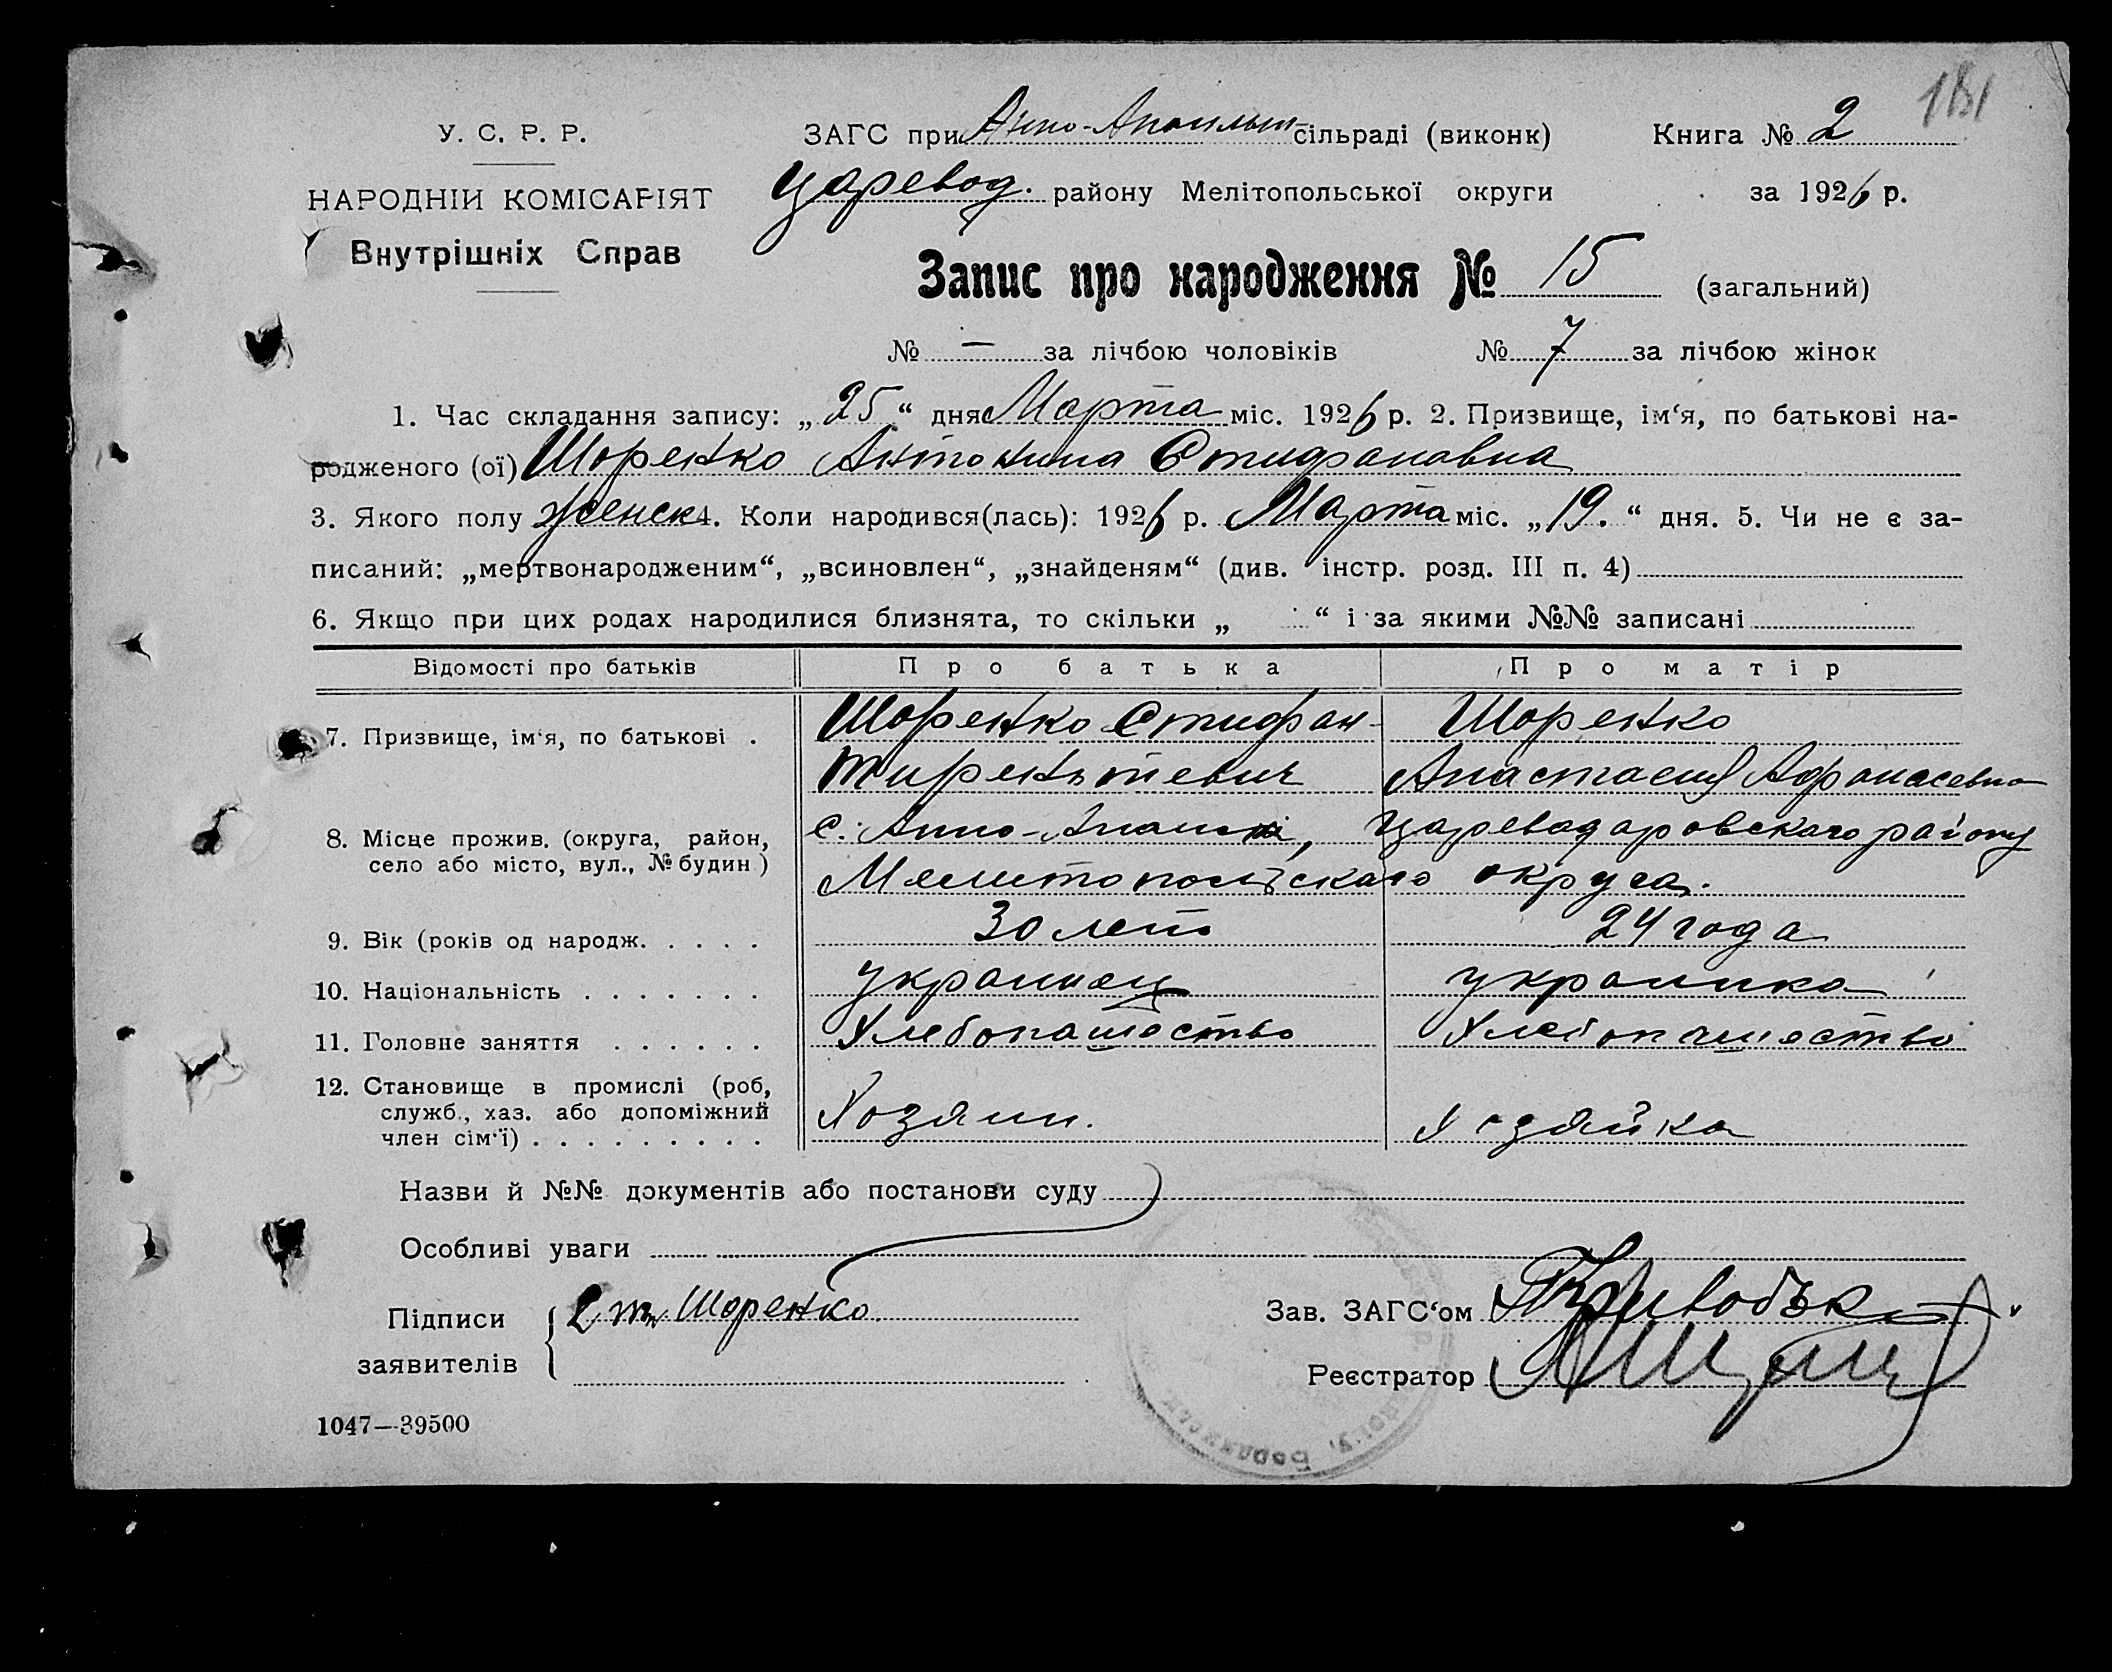 181
У. С. Р. Р.
НАРОДНІЙ КОМІСАРІЯТ
Внутрішніх Справ
ЗАГС при Анно- сільраді (виконк) Книга № 2
Царевод. району Мелітопольської округи за 1926 р.
Запис про народження № 15 (загальний)
№ — за лічбою чоловіків № 7 за лічбою жінок
1. Час складання запису: „25“ дня Марта міс. 1926 р. 2. Призвище, ім‘я, по батькові на-
родженого (ої) Шоренко Антонина Стифановна
3. Якого полу женск 4. Коли народився(лась): 1926 р. Марта міс. „19.“ дня. 5. Чи не є за-
писаний: „мертвонародженим“, „всиновлен“, „знайденям“ (див. інстр. розд. III п. 4)
6. Якщо при цих родах народилися близнята, то скільки „ “ і за якими №№ записані
Відомості про батьків Про батька Про матір
7. Призвище, ім‘я, по батькові . Шоренко Стифан Шоренко
Тирентьевич Анастасия Афонасевна
8. Місце прожив. (округа, район, с. Анно- , Цареводаровскаго району
село або місто, вул., № будин) Мелитопольскаго округа.
9. Вік (років од народж. . . . . 30 лет 24 года
10. Національність . . . . . . . украинец украинка
11. Головне заняття . . . . . . Хлебопашество Хлебопашество
12. Становище в промислі (роб, служб., хаз. або допоміжний член сім‘ї) . . . . . . . . . Хозяин. Хозяйка
Назви й №№ документів або постанови суду
Особливі уваги
Підписи заявителів Шоренко
Зав. ЗАГС‘ом
Реєстратор
1047—39500